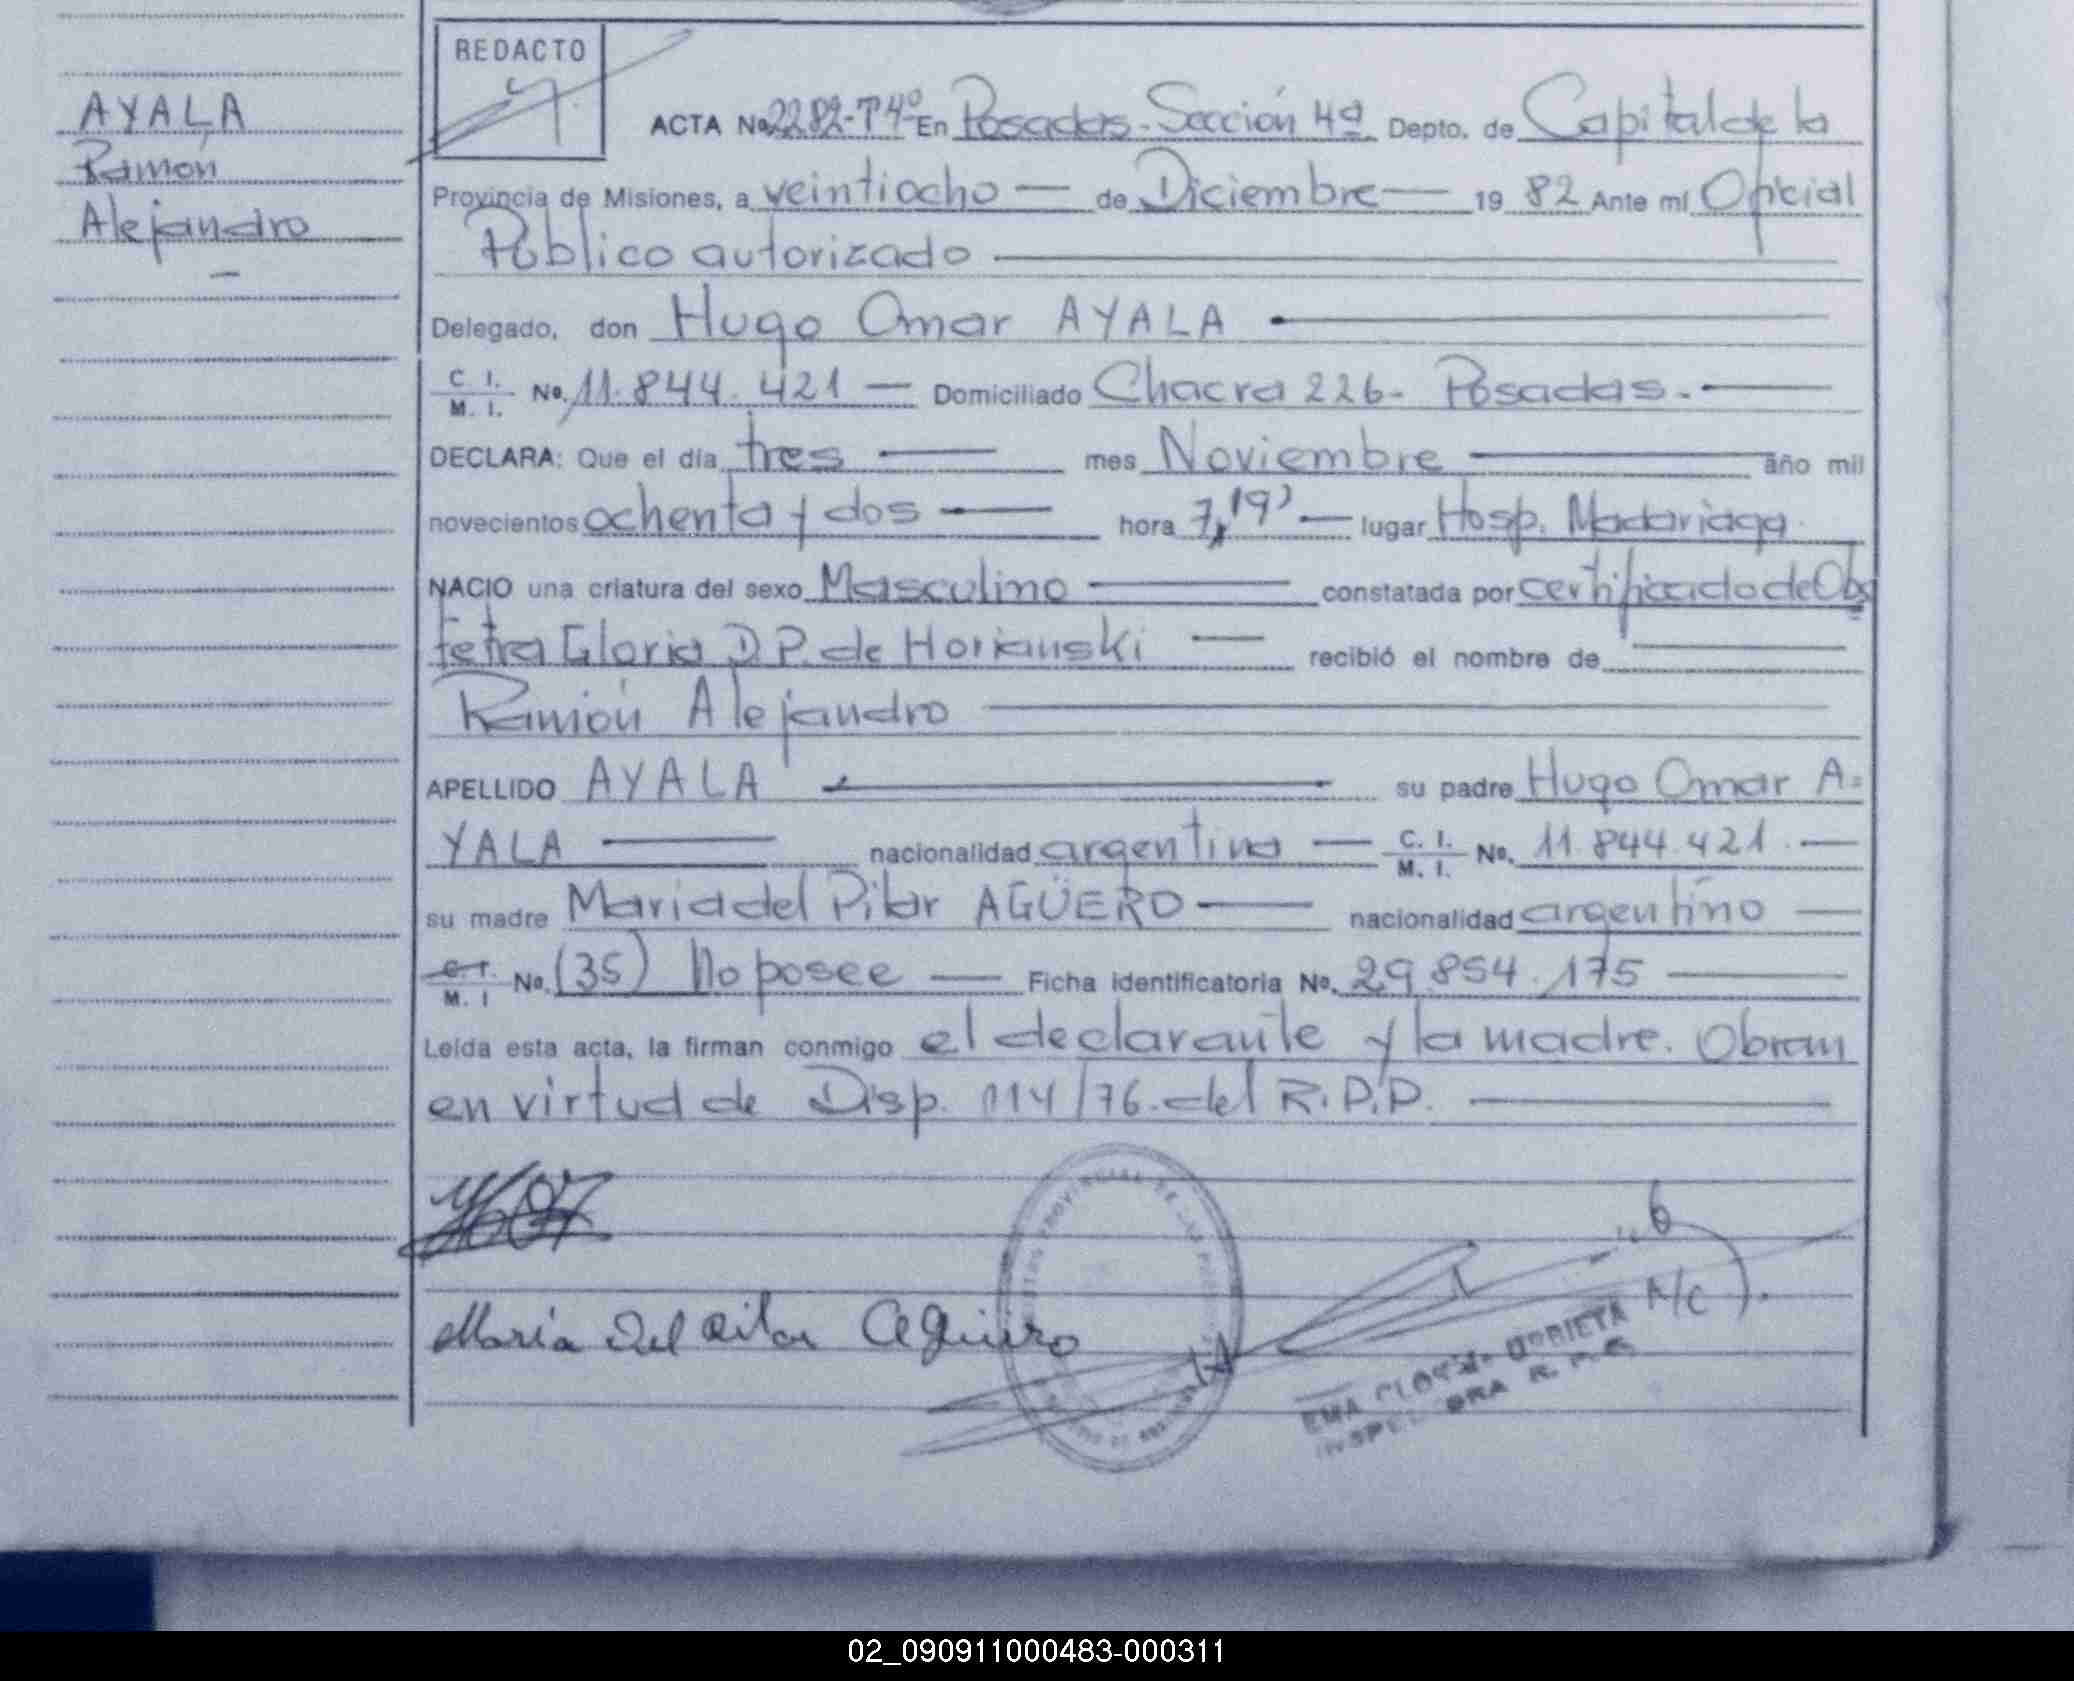 AYALA
Ramón
Alejandro
REDACTO
ACTA No. 2282-Tº4º En Posadas - Sección 4ª Depto. de Capital de la
Provincia de Misiones, a veintiocho — de Diciembre — 19 82 Ante mí Oficial
Público autorizado —
Delegado, don Hugo Omar AYALA —
C. I. / M. I. No. 11.844.421 — Domiciliado Chacra 226 - Posadas. —
DECLARA: Que el día tres — mes Noviembre — año mil
novecientos ochenta y dos — hora 7,19' — lugar Hosp. Madariaga
NACIO una criatura del sexo Masculino — constatada por certificado de Obs
tetra Gloria D.P. de Horianski — recibió el nombre de —
Ramón Alejandro —
APELLIDO AYALA — su padre Hugo Omar A=
YALA — nacionalidad argentina — C. I. / M. I. No. 11.844.421. —
su madre Maria del Pilar AGÜERO — nacionalidad argentino —
C. I. / M. I No. (35) No posee — Ficha identificatoria No. 29.854.175 —
Leída esta acta, la firman conmigo el declarante y la madre. Obran
en virtud de Disp. 114/76. del R.P.P. —
María Del Pilar Aguero
A/C
EMA URRIETA
INSPECTORA R. P.
02_090911000483-000311